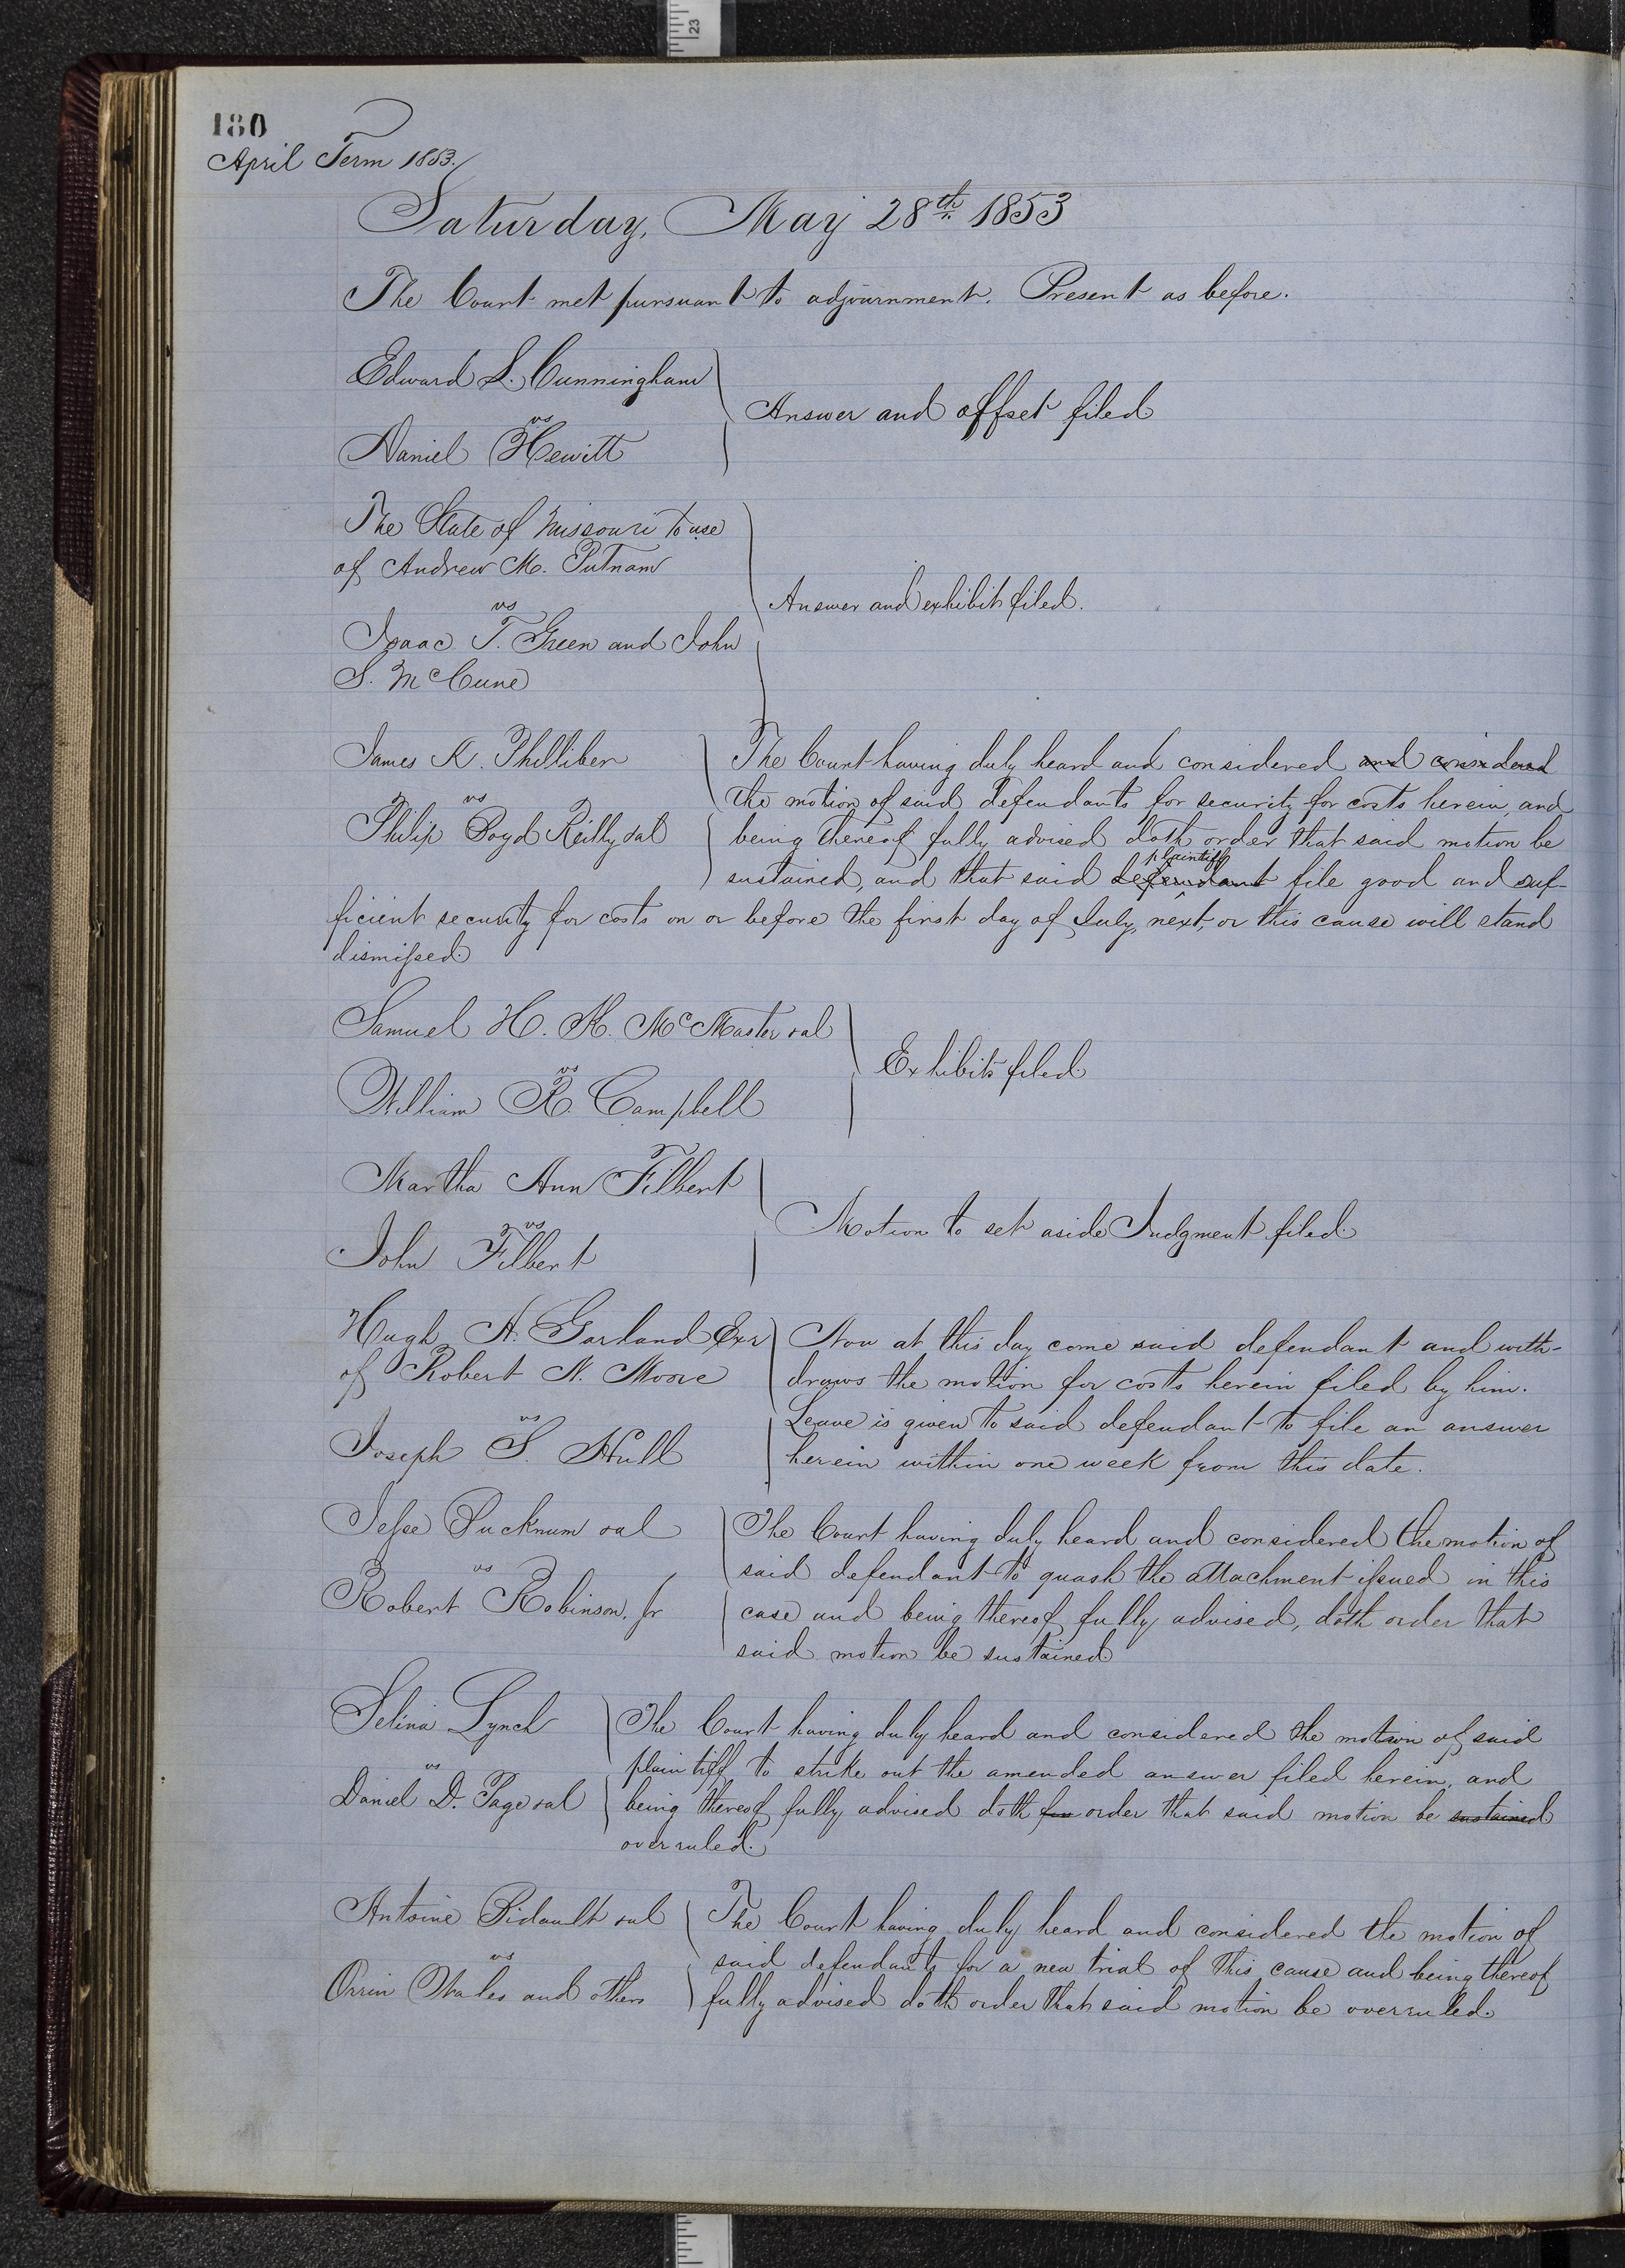 23
180
April Term 1853.
Saturday, May 28th 1853
The Court met pursuant to adjournment. Present as before.
Edward L. Cunningham
vs
Daniel Hewitt
Answer and offset filed
The State of Missouri to use
of Andrew M. Putnam
vs
Isaac T. Green and John
S. McCune
Answer and exhibit filed.
James K. Philliber
vs
Philip Boyd Reilly et al
The Court having duly heard and considered and considered
the motion of said defendants for security for costs herein, and
being thereof fully advised doth order that said motion be
plaintiff
sustained, and that said defendant file good and suf-
ficient security for costs on or before the first day of July, next, or this cause will stand
dismissed.
Samuel H. K. McMaster et al
vs
William R. Campbell
Exhibits filed
Martha Ann Filbert
vs
John Filbert
Motion to set aside Judgment filed.
Hugh A. Garland Exr
of Robert N. Moore
vs
Joseph S. Hull
Now at this day come said defendant and with-
draws the motion for costs herein filed by him.
Leave is given to said defendant to file an answer
herein within one week from this date.
Jesse Pucknum et al
vs
Robert Robinson, Jr
The Court having duly heard and considered the motion of
said defendant to quash the attachment issued in this
case and being thereof fully advised, doth order that
said motion be sustained
Selina Lynch
vs
Daniel D. Page et al
The Court having duly heard and considered the motion of said
plaintiff to strike out the amended answer filed herein, and
being thereof fully advised doth order that said motion be sustained
overruled.
Antoine Bidault et al
vs
Orrin Wales and others
The Court having duly heard and considered the motion of
said defendants for a new trial of this cause and being thereof
fully advised doth order that said motion be overruled.